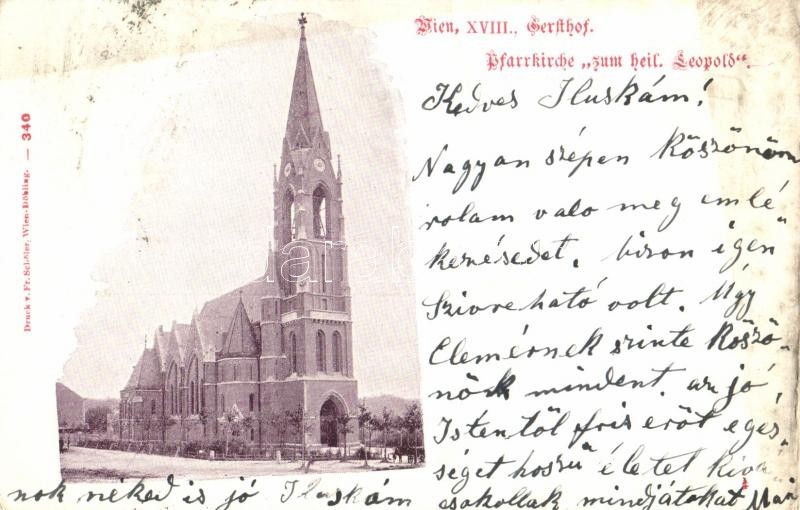 Wien, XVIII., Gersthof.
Pfarrkirche „zum heil. Leopold“.
Druck v. Fr. Schöler, Wien-Döbling. — 340
Kedves Iluskám!
Nagyan szépen Köszönöm
rolam valo meg emlé
kezésedet, bizon igen
Szivreható volt. Úgy
Elemérnek szinte Köszö-
nöck mindent. az jó
Istentől friss erőt egés-
séget hoszu életet kivá
nok néked is jó Iluskám
csokollak mindjátokat Mari